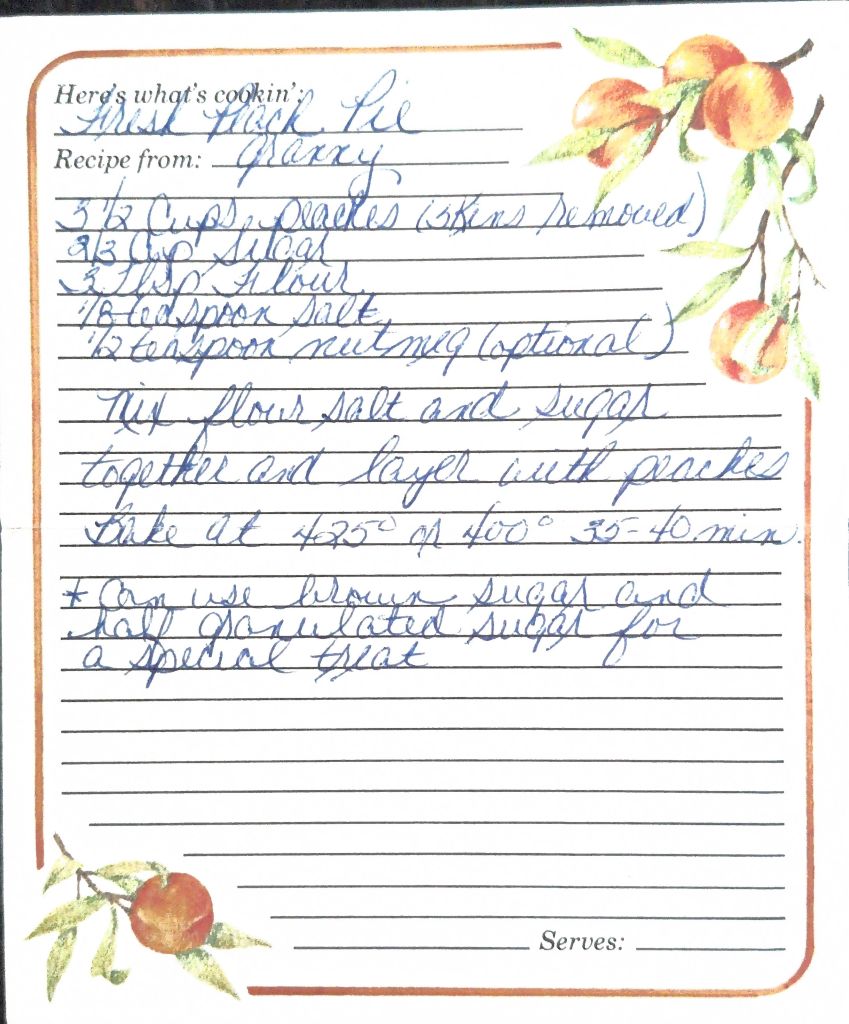 Here's what's cookin':
Fresh Peach Pie
Recipe from: Granny
3 1/2 Cups peaches (skins removed)
2/3 Cup Sugar
3 Tbsp Flour
1/8 teaspoon salt
1/2 teaspoon nutmeg (optional)
Mix flour salt and sugar
together and layer with peaches
Bake at 425° or 400° 35-40 min.
* Can use brown sugar and
half granulated sugar for
a special treat
Serves: